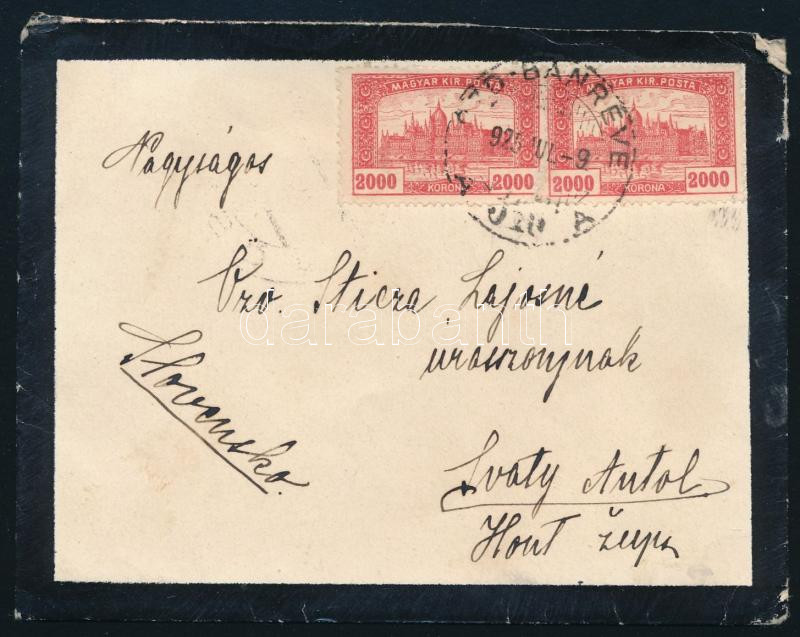 MAGYAR KIR. POSTA
MAGYAR KIR. POSTA
BÁNRÉVE
925 JUL -9
2000 KORONA 2000
2000 KORONA 2000
Nagyságos
Özv. Sticza Lajosné
urasszonynak
Slovensko.
Svaty Antol
Hont župa
darabanth